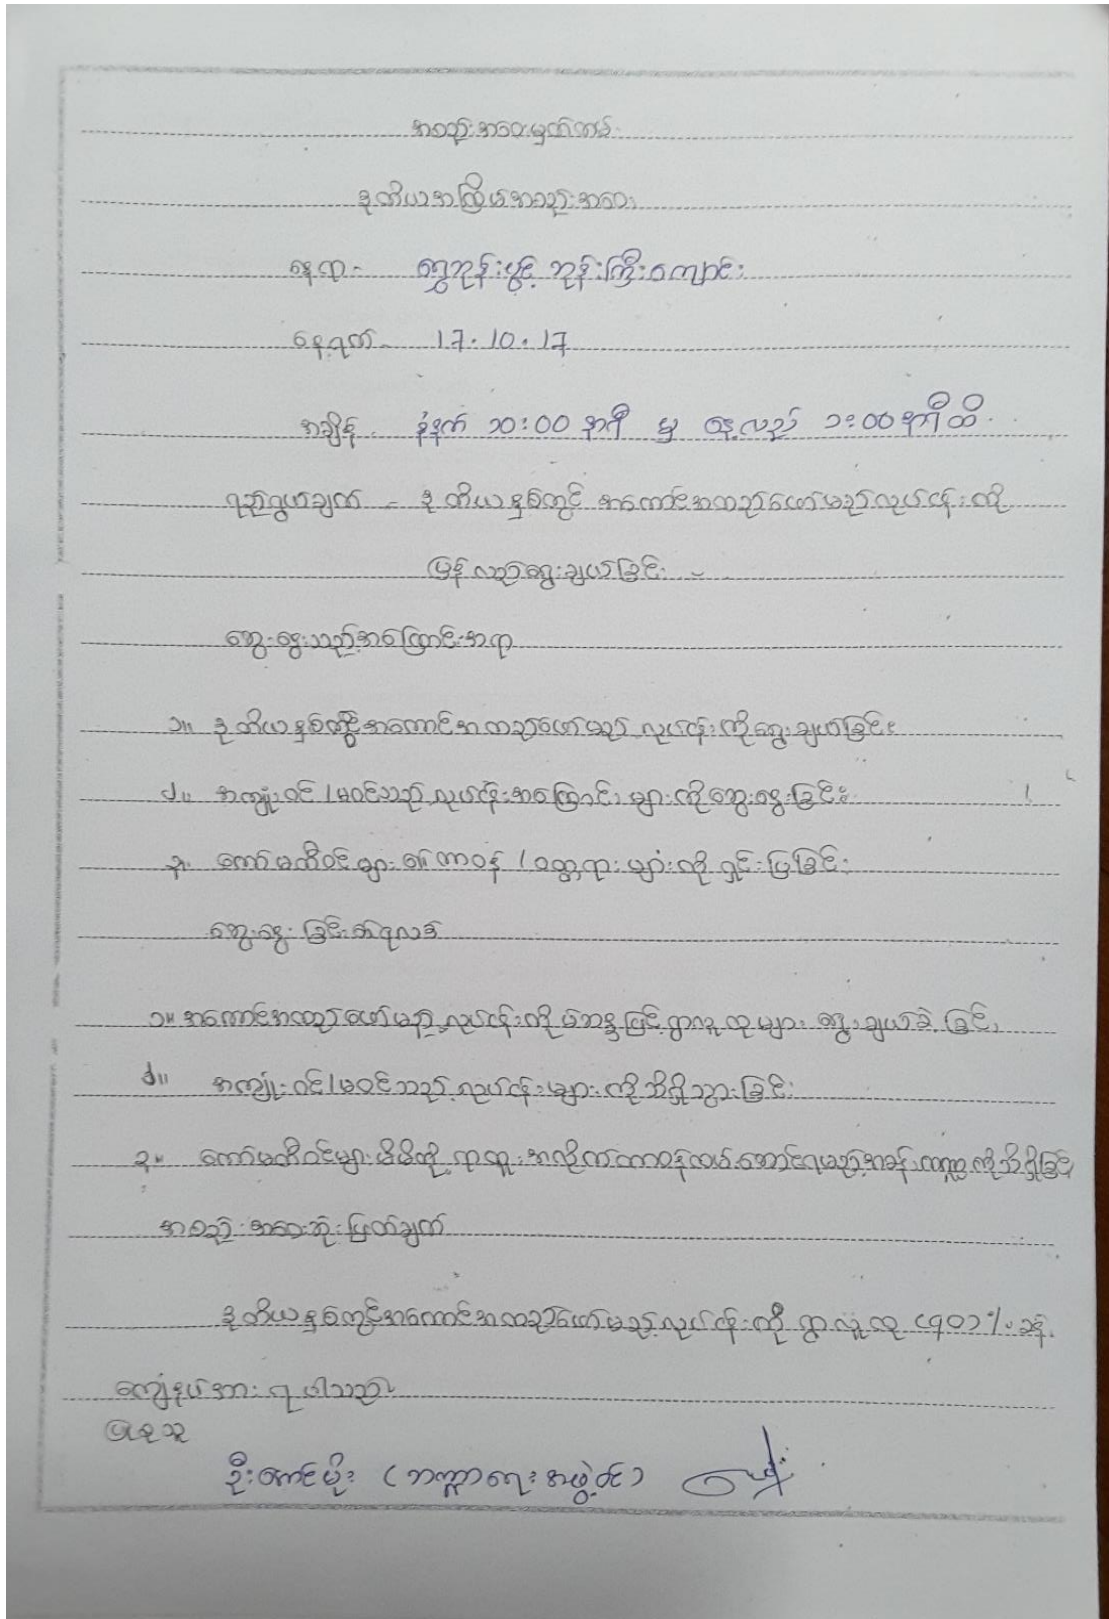 အစည်းအဝေးမှတ်တမ်း
ဒုတိယအကြိမ်အစည်းအဝေး
နေရာ- ရွှေဘုန်းပွင့် ဘုန်းကြီးကျောင်း
နေ့ရက်- 17.10.17
အချိန် - နံနက် ၁၀:၀၀ နာရီ မှ နေ့လည် ၁:၀၀ နာရီထိ
ရည်ရွယ်ချက် - ဒုတိယနှစ်တွင် အကောင်အထည်ဖော်မည့်လုပ်ငန်းကို
ပြန်လည်ရွေးချယ်ခြင်း -
ဆွေးနွေးသည့်အကြောင်းအရာ
၁။ ဒုတိယနှစ်တွင်အကောင်အထည်ဖော်မည့် လုပ်ငန်းကိုရွေးချယ်ခြင်း
၂။ အကျုံးဝင်/မဝင်သည့် လုပ်ငန်းအကြောင်းများကိုဆွေးနွေးခြင်း
၃။ ကော်မတီဝင်များ၏တာဝန်/ဝတ္တရားများကို ရှင်းပြခြင်း
ဆွေးနွေးခြင်းရလဒ်
၁။ အကောင်အထည်ဖော်မည့်လုပ်ငန်းကို မဲဆန္ဒဖြင့်ရွာလူထုများ ရွေးချယ်ခဲ့ခြင်း
၂။ အကျုံးဝင်/မဝင်သည့်လုပ်ငန်းများကိုသိရှိသွားခြင်း
၃။ ကော်မတီဝင်များမိမိတို့ရာထူးအလိုက်တာဝန်ထမ်းဆောင်ရမည့်အခန်းကဏ္ဍကိုသိရှိခြင်း
အစည်းအဝေးဆုံးဖြတ်ချက်
ဒုတိယနှစ်တွင်အကောင်အထည်ဖော်မည့်လုပ်ငန်းကို ရွာလူထု (၅၀)% ခန့်
ကျေနပ်အားရပါသည်။
ပြုစုသူ
ဦးကောင်မိုး (ဘဏ္ဍာရေးအဖွဲ့ဝင်)